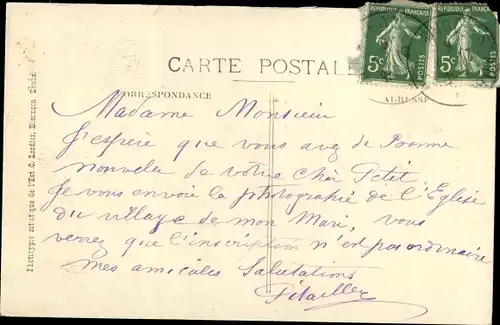 RÉPUBLIQUE FRANÇAISE
5c
POSTES
RÉPUBLIQUE FRANÇAISE
5c
POSTES
CARTE POSTALE
CORRESPONDANCE
ADRESSE
Madame Monsieur
J'espère que vous avez de Bonne
nouvelles de votre Cher Petit
Je vous envoie la photographie de l'Eglise
du village de mon Mari, vous
verrez que l'inscription n'est pas ordinaire
Mes amicales Salutations
Phototypie artistique de l'Est C. Lardier, Besançon